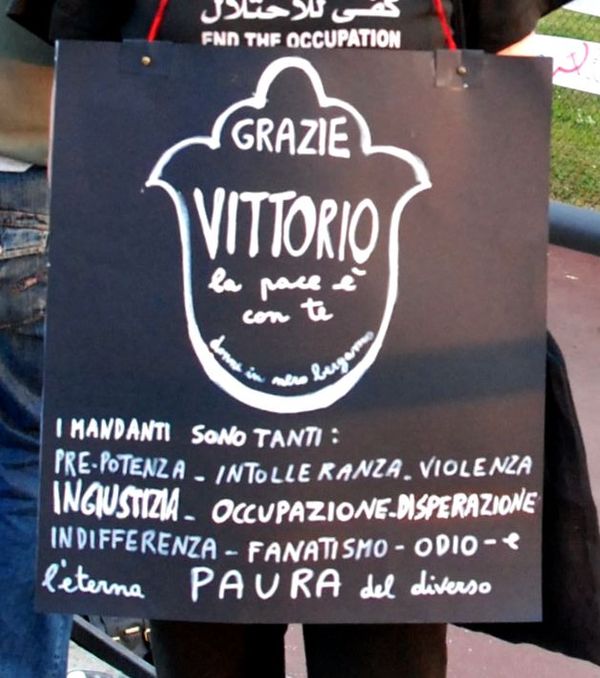 كفى للاحتلال
END THE OCCUPATION
GRAZIE
VITTORIO
la pace è
con te
donne in nero bergamo
I MANDANTI SONO TANTI:
PRE-POTENZA - INTOLLERANZA - VIOLENZA
INGIUSTIZIA - OCCUPAZIONE - DISPERAZIONE
INDIFFERENZA - FANATISMO - ODIO - e
l'eterna PAURA del diverso